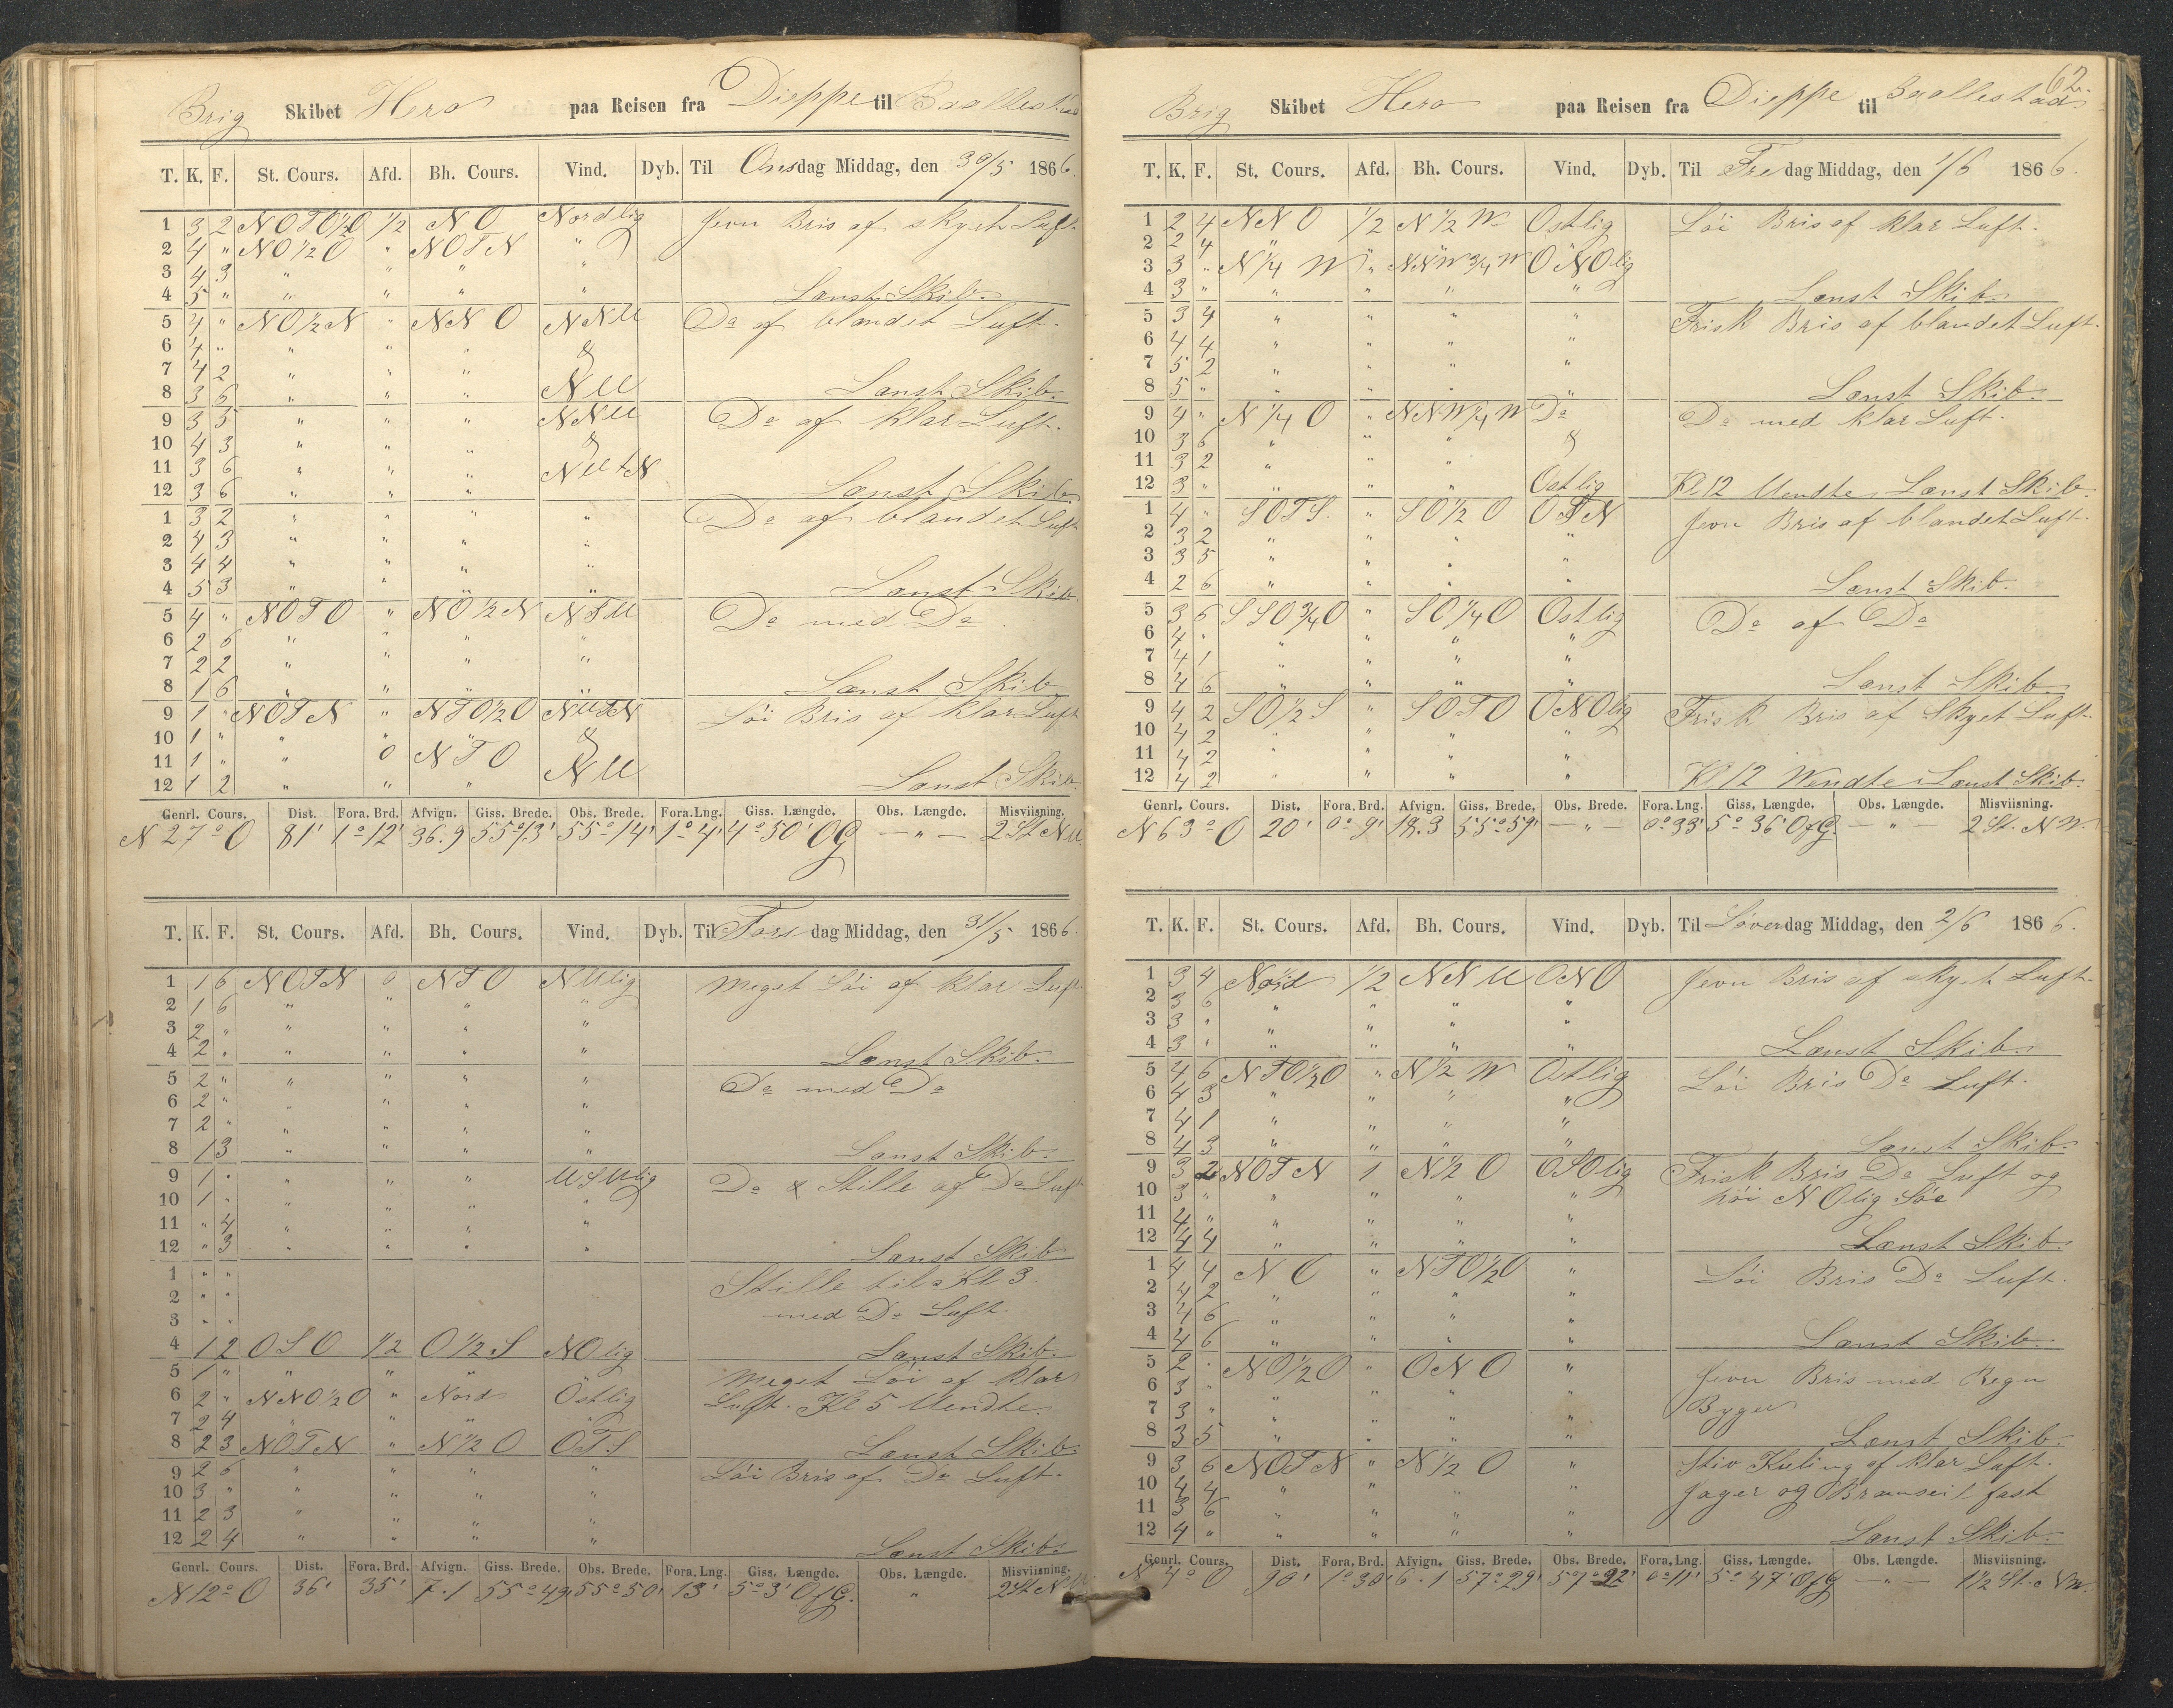 Brig Skibet Hero paa Reisen fra Dieppe til
T. K. F. St. Cours. Afd. Bh. Cours. Vind. Dyb. Til Onsdag Middag, den 30/5 1866.
1 3 2 NOTO½O ½ NO Nordlig Jevn Bris af skyet Luft.
2 4 " NO½O " NOTN "
3 4 3 " " " "
4 5 " " " " " Lænst Skib.
5 4 " NO½N " NNO NNW Do af blandet Luft.
6 4 " " " " &
7 4 2 " " "
8 3 6 " " " NW Lænst Skib.
9 3 5 " " " NNW Do af klar Luft.
10 4 3 " " " &
11 3 6 " " " NWtN
12 3 6 " " " Lænst Skib.
1 3 2 " " " " Do af blandet Luft
2 4 3 " " " "
3 4 4 " " " "
4 5 3 " " " " Lænst Skib.
5 4 " NOTO " NO½N NTW Do med Do.
6 2 6 " " " "
7 2 2 " " " "
8 1 6 " " " " Lænst Skib
9 1 " NOTN " NTO½O NWTN Löi Bris af klar Luft
10 1 " " " &
11 1 " " 0 NTO
12 1 2 " " " NW Lænst Skib.
Genrl. Cours. Dist. Fora. Brd. Afvign. Giss. Brede. Obs. Brede. Fora.Lng. Giss. Længde. Obs. Længde. Misviisning.
N 27° O 81' 1° 12' 36.9 55° 13' 55° 14' 1° 4' 4° 50' OG — " — 2 St. NW.
T. K. F. St. Cours. Afd. Bh. Cours. Vind. Dyb. Til Torsdag Middag, den 31/5 1866.
1 1 6 NOTN 0 NTO NWlig Meget Löi af klar Luft
2 1 6 " " " "
3 2 " " " " "
4 2 " " " " " Lænst Skib.
5 2 " " " " " Do med Do
6 2 " " " " "
7 2 " " " " "
8 1 3 " " " " Lænst Skib.
9 1 " " " " WSWlig Do & Stille af Do Luft
10 1 " " " " "
11 " 4 " " " "
12 " 3 " " " " Lænst Skib
1 " " Stille til Kl 3.
2 " " med Do Luft.
3 " "
4 1 2 OSO ½ O½S NOlig Lænst Skib.
5 1 " " " Meget Löi af klar
6 2 " NNO½O " Nord Östlig Luft. Kl 5 Wendte.
7 2 4 " " " "
8 2 3 NOTN " N½O OTS Lænst Skib.
9 2 6 " " " " Löi Bris af Do Luft.
10 3 " " " " "
11 2 3 " " " "
12 2 4 " " " " Lænst Skib.
Genrl. Cours. Dist. Fora. Brd. Afvign. Giss. Brede. Obs. Brede. Fora. Lng. Giss. Længde. Obs. Længde. Misviisning.
N 12° O 36' 35' 7.1 55° 49' 55° 50' 13' 5° 3' OfG. " 2 St NW
62.
Brig Skibet Hero paa Reisen fra Dieppe til
T. K. F. St. Cours. Afd. Bh. Cours. Vind. Dyb. Til Fredag Middag, den 1/6 1866.
1 2 4 NNO ½ N½W Ostlig Löi Bris af klar Luft.
2 2 4 " " " "
3 3 " N¼W " NNW¾W ONOlig
4 3 " " " " " Lænst Skib.
5 3 4 " " " " Frisk Bris af blandet Luft.
6 4 4 " " " "
7 5 2 " " " "
8 5 " " " " " Lænst Skib.
9 4 " N¼O " NNW¼W Do Do med klar Luft.
10 3 6 " " " &
11 3 2 " " "
12 3 " " " " Ostlig Kl 12 Wendte Lænst Skib.
1 4 " SOTS. " SO½O OTN Jevn Bris af blandet Luft.
2 3 2 " " " "
3 3 5 " " " "
4 2 6 " " " " Lænst Skib.
5 3 6 SSO¾O " SO¼O Ostlig Do af Do
6 4 " " " " "
7 4 1 " " " "
8 4 6 " " " " Lænst Skib.
9 4 2 SO½S " SOTO ONOlig Frisk Bris af Skyet Luft.
10 4 2 " " " "
11 4 2 " " " "
12 4 2 " " " " Kl 12 Wendte Lænst Skib.
Genrl. Cours. Dist. Fora. Brd. Afvign. Giss. Brede. Obs. Brede. Fora.Lng. Giss. Længde. Obs. Længde. Misviisning.
N 63° O 20' 0° 9' 18.3 55° 59' — " — 0° 33' 5° 36' OfG. — " 2 St. NW.
T. K. F. St. Cours. Afd. Bh. Cours. Vind. Dyb. Til Löverdag Middag, den 2/6 1866.
1 3 4 Nord ½ NNW ONO Jevn Bris af skyet Luft.
2 3 6 " " " "
3 3 " " " " "
4 3 " " " " " Lænst Skib.
5 4 6 NTO½O " N½W Ostlig Löi Bris Do Luft.
6 4 3 " " " "
7 4 1 " " " "
8 4 3 " " " " Lænst Skib.
9 3 2 NOTN 1 N½O OSOlig Frisk Bris Do Luft og
10 3 " " " " " höi NOlig Söe
11 4 " " " " "
12 4 4 " " " " Lænst Skib.
1 4 4 NO " NTO½O " Löi Bris Do Luft.
2 4 2 " " " "
3 4 6 " " " "
4 4 6 " " " " Lænst Skib.
5 2 " NO½O " ONO " Jevn Bris med Regn
6 3 " " " " " Byger
7 3 " " " " "
8 3 5 " " " " Lænst Skib.
9 3 6 NOTN " N½O " Stiv Kuling af klar Luft.
10 4 4 " " " " Jager og Bramseil fast
11 3 6 " " " "
12 4 " " " " " Lænst Skib.
Genrl. Cours. Dist. Fora. Brd. Afvign. Giss. Brede. Obs. Brede. Fora. Lng. Giss. Længde. Obs. Længde. Misviisning.
N 4° O 90' 1° 30' 6.1 57° 29' 57° 22' 0° 11' 5° 47' OfG — " — 1½ St. NW.